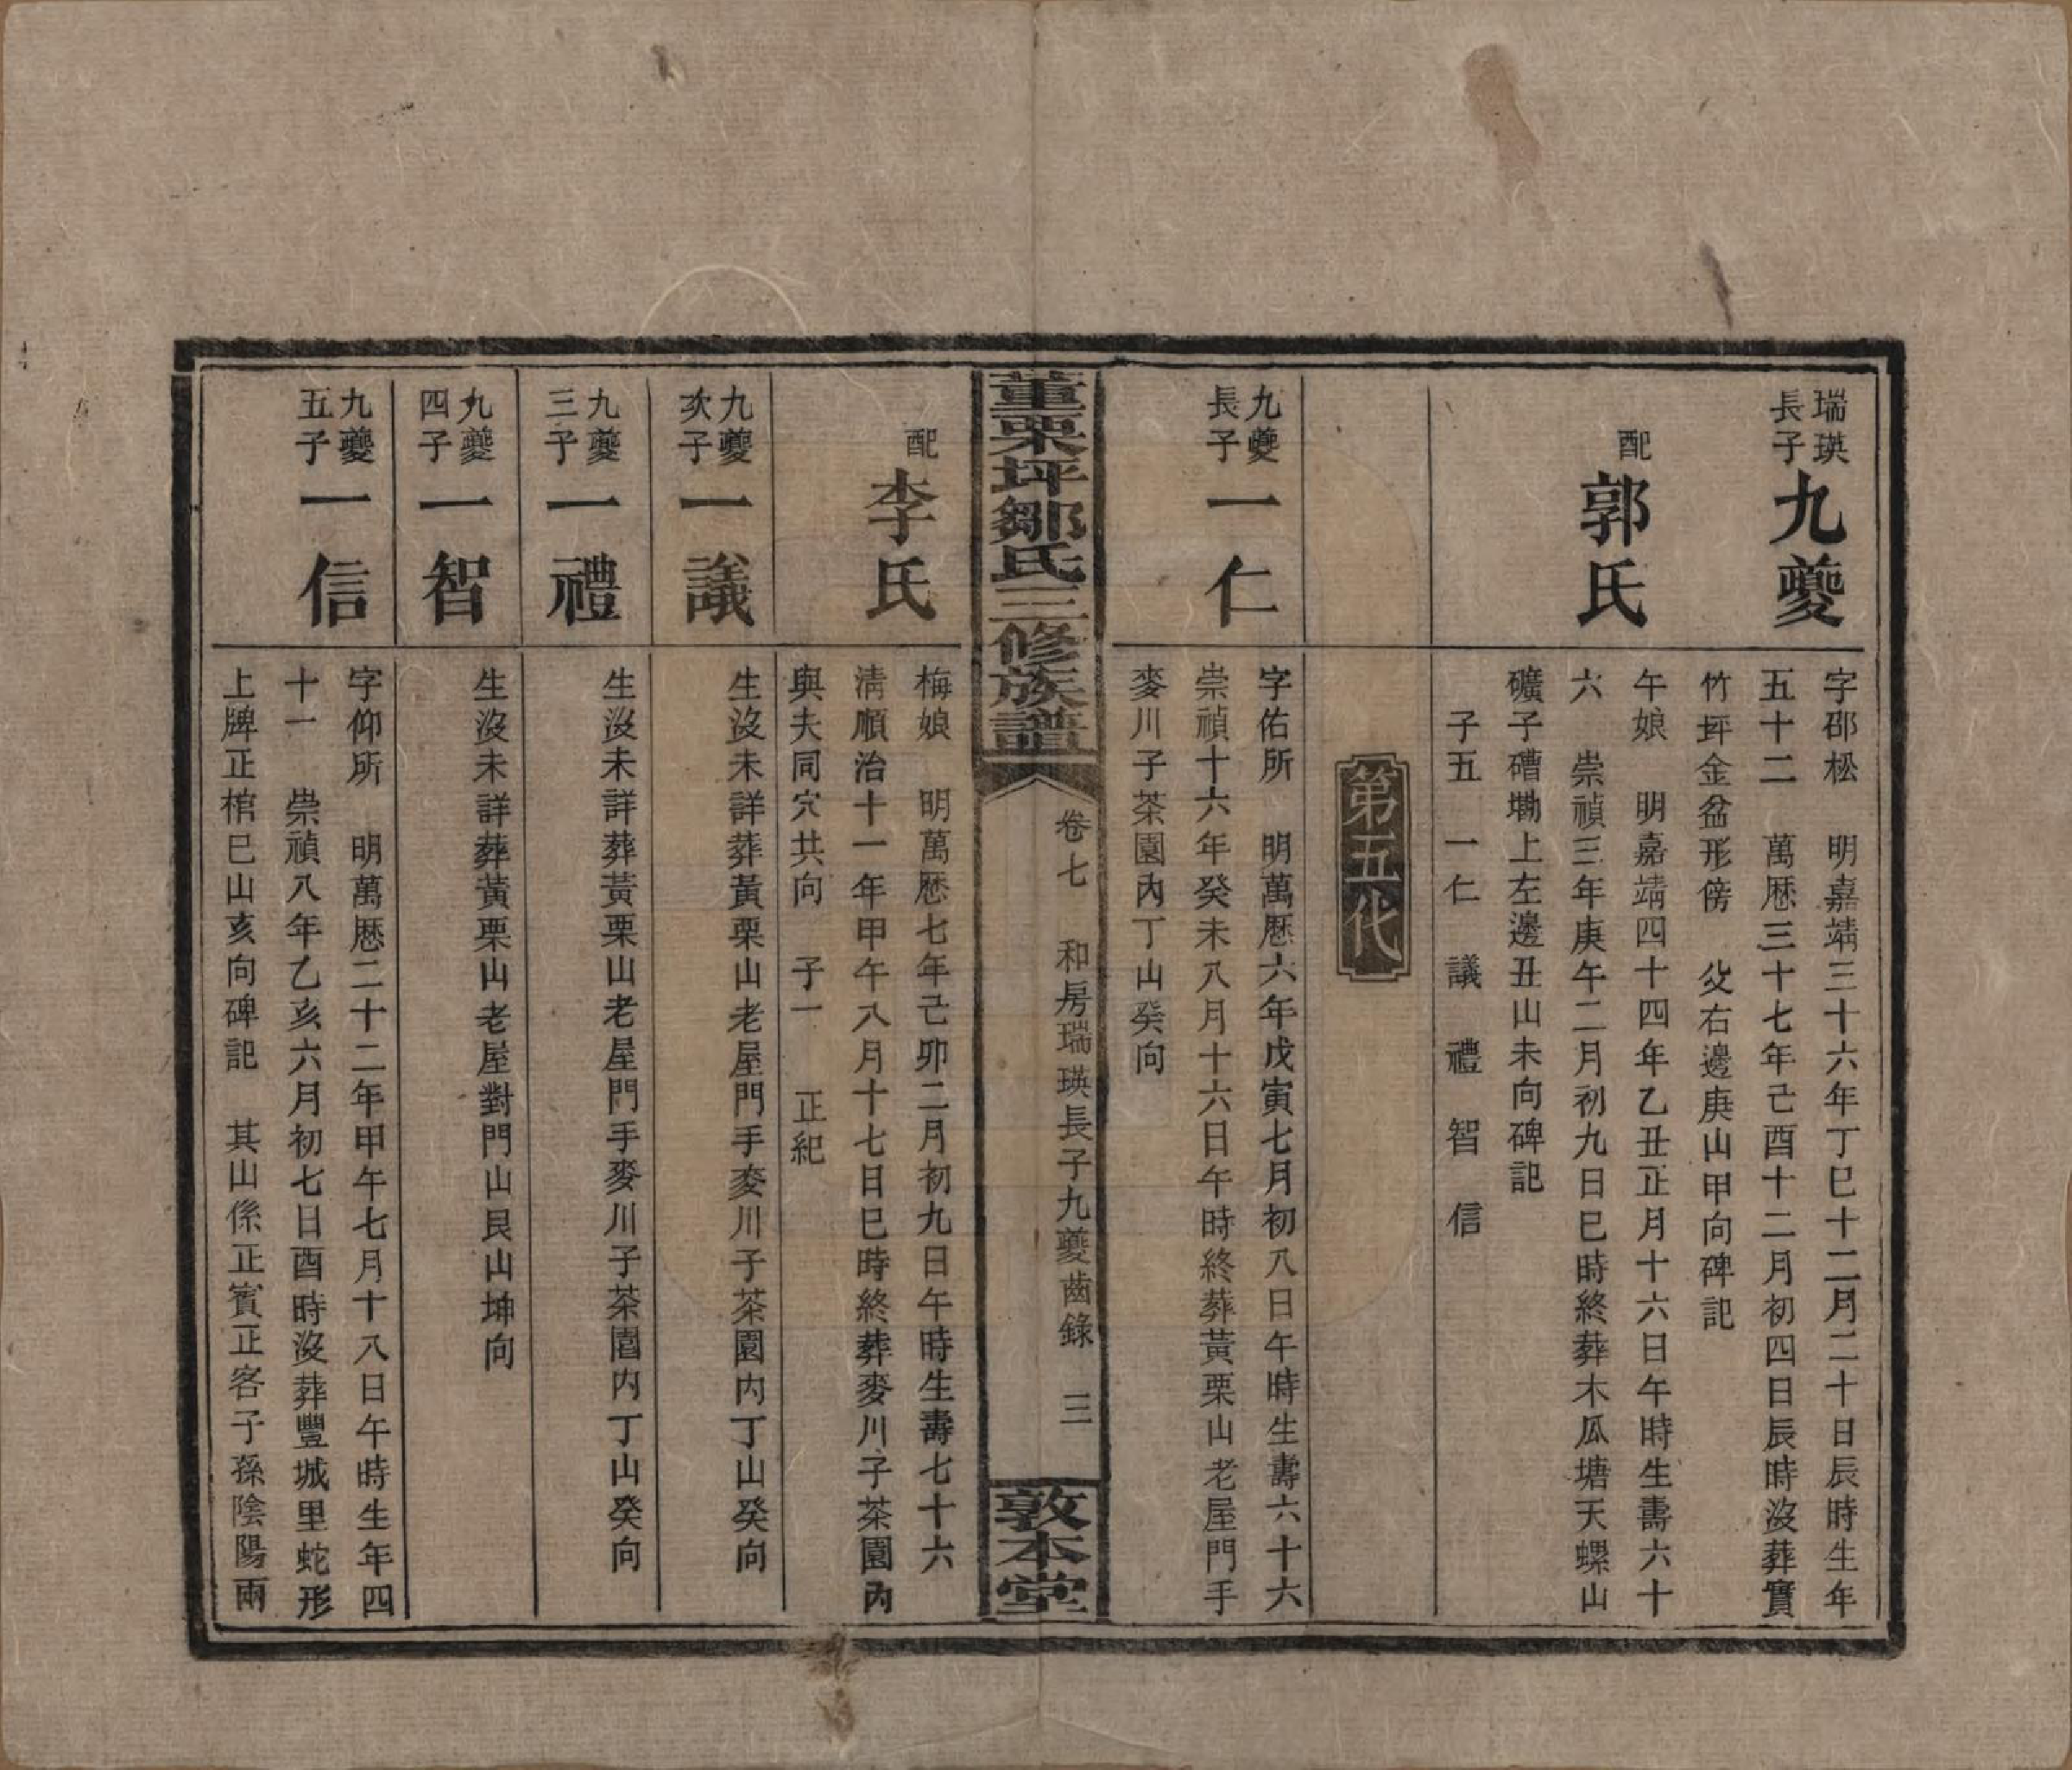 瑞瑛
長子
九夔
字邵松　明嘉靖三十六年丁巳十二月二十日辰時生年
五十二　萬歷三十七年己酉十二月初四日辰時没葬實
竹坪金盆形傍　父右邊庚山甲向碑記
配
郭氏
午娘　明嘉靖四十四年乙丑正月十六日午時生壽六十
六　崇禎三年庚午二月初九日巳時終葬木瓜塘天螺山
礦子磄墈上左邊丑山未向碑記
子五　一仁　議　禮　智　信
第五代
九夔
長子
一仁
字佑所　明萬歷六年戊寅七月初八日午時生壽六十六
崇禎十六年癸未八月十六日午時終葬黃栗山老屋門手
麥川子茶園內丁山癸向
董栗坪鄒氏三修族譜
卷七　和房瑞瑛長子九夔齒錄　三
敦本堂
配
李氏
梅娘　明萬歷七年己卯二月初九日午時生壽七十六
清順治十一年甲午八月十七日巳時終葬麥川子茶園內
與夫同穴共向　子一　正紀
九夔
次子
一議
生没未詳葬黃栗山老屋門手麥川子茶園内丁山癸向
九夔
三子
一禮
生没未詳葬黃栗山老屋門手麥川子茶園内丁山癸向
九夔
四子
一智
生没未詳葬黃栗山老屋對門山艮山坤向
九夔
五子
一信
字仰所　明萬歷二十二年甲午七月十八日午時生年四
十一　崇禎八年乙亥六月初七日酉時没葬豐城里蛇形
上牌正棺巳山亥向碑記　其山係正賓正客子孫陰陽兩